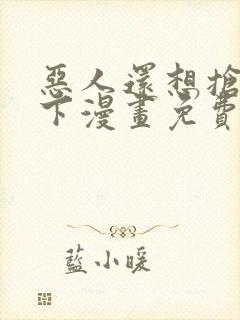 惡人還想搶
下漫畫免費
藍小暖